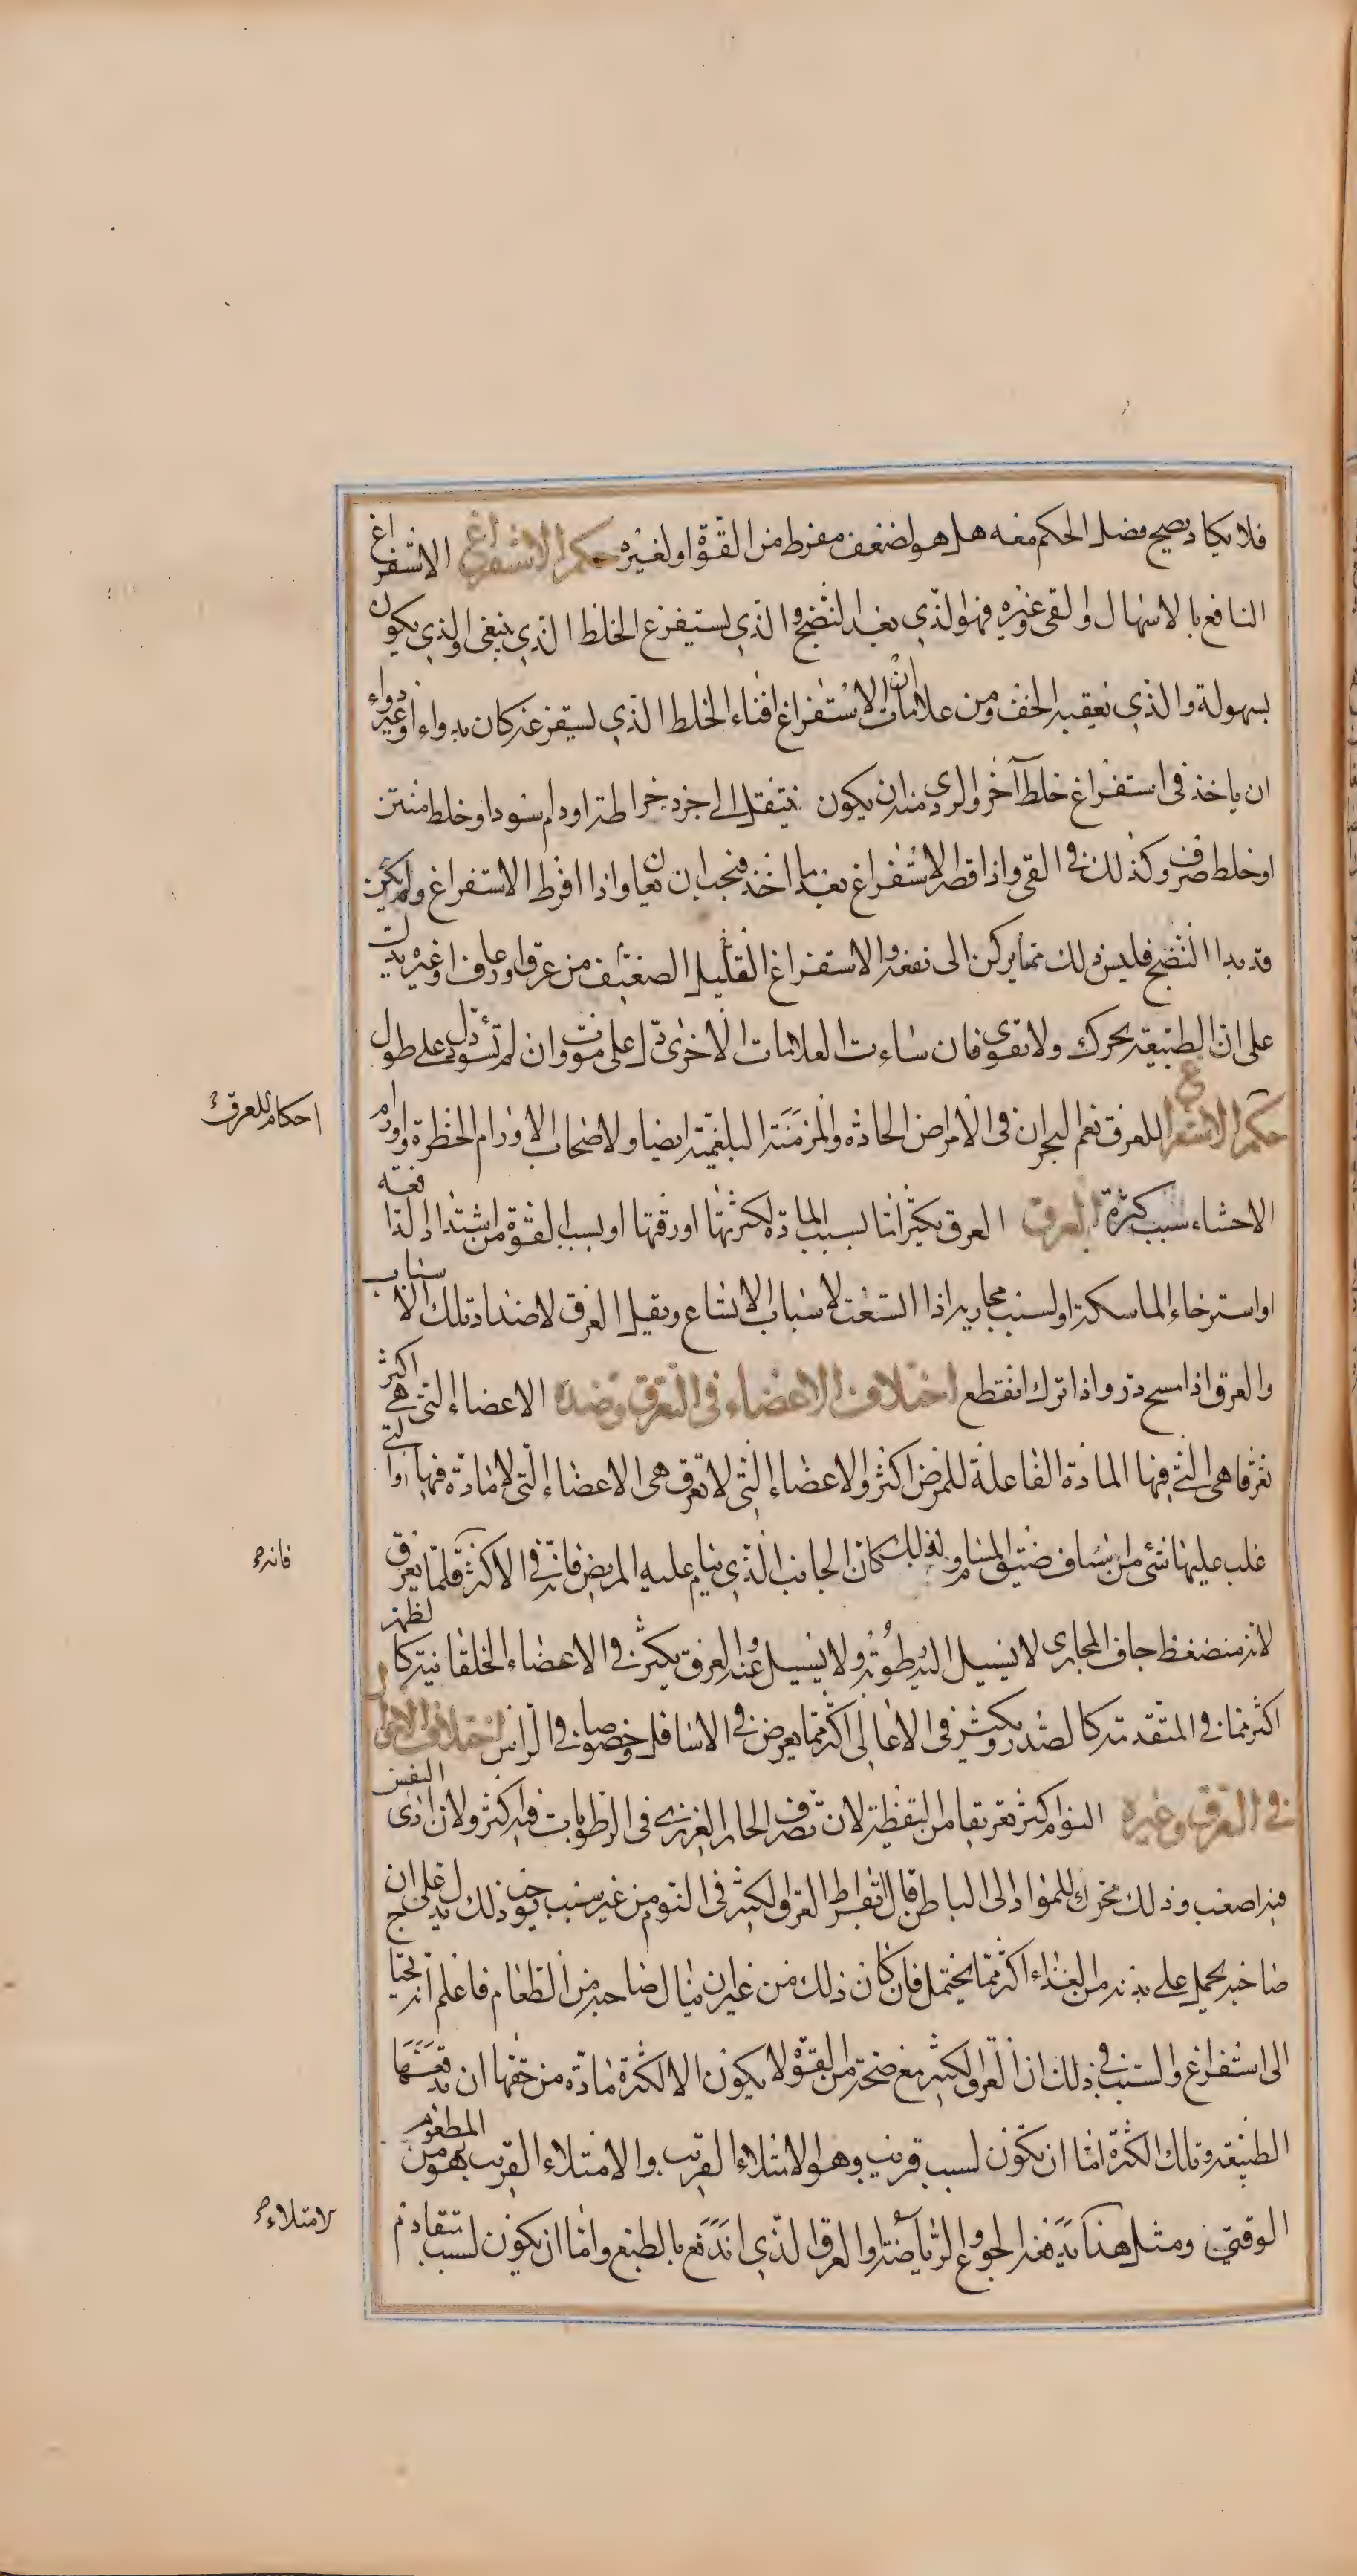 فلا يكاد يصح فصل الحكم معه هل هو لضعف مفرط من القوة او لغيره حكم الاستفراغ الاستفراغ
النافع بالاسهال والقى وغيره فهو الذي بعد النضج والذي يستفرغ الخلط الذي ينبغى والذي يكون
بسهولة والذي يعقبه الخف ومن علامات ان الاستفراغ افناء الخلط الذي يستفرغ عنه كان بدواء او غير دواء
ان ياخذ فى استفراغ خلط آخر والردى منه ان يكون ينتقل الى جرد خراطة او دم اسود او خلط منتن
او خلط صرف وكذلك في القى واذا قصر الاستفراغ بعد ما اخذ فيجب ان يعان واذا افرط الاستفراغ ولم يكن
قد بدا النضج فليس ذلك مما يركن الى نفعه والاستفراغ القليل الضعيف من عرق او رعاف او غيره يدل
على ان الطبيعة تحرك ولا تقوى فان ساءت العلامات الاخرى دل على موت وان لم تسؤ دل على طول
حكم الاستفراغ للعرق نعم البحران فى الامراض الحادة والمزمنة البلغمية ايضا ولاصحاب الاورام الخطرة واورام
الاحشاء سبب كثرة العرق العرق يكثر اما بسبب المادة لكثرتها او رقتها او بسبب القوة من اشتداد الدافعة
او استرخاء الماسكة او لسبب مجاريه اذا اتسعت لاسباب الاتساع ويقل العرق لاضداد تلك الاسباب
والعرق اذا مسح در واذا ترك انقطع اختلاف الاعضاء فى التعرق وضده الاعضاء التي هي اكثر
تعرقا هى التي فيها المادة الفاعلة للمرض اكثر والاعضاء التى لا تعرق هى الاعضاء التى لا مادة فيها او التى
غلب عليها شئ من سباب ضيق المسام ولذلك كان الجانب الذى ينام عليه المريض فانه في الاكثر قلما يعرق
لانه منضغط جاف المجارى لا يسيل اليه رطوبة ولا يسيل عنه والعرق يكثر في الاعضاء الخلفانية كالظهر
اكثر مما في المتقدمة كالصدر ويكثر فى الاعالى اكثر مما يعرض في الاسافل وخصوصا في الراس اختلاف الاحوال
في العرق وغيره النوم اكثر تعريقا من اليقظة لان تصرف الحار الغريزى فى الرطوبات فيه اكثر ولان اذى النفس
فيه اصعب وذلك محرك للمواد الى الباطن قال بقراط العرق الكثير فى النوم من غير سبب يوجب ذلك يدل على ان
صاحبه يحمل على بدنه من الغذاء اكثر مما يحتمل فان كان ذلك من غير ان ينال صاحبه من الطعام فاعلم انه يحتاج
الى استفراغ والسبب في ذلك ان العرق الكثير مع صحة من القوة لا يكون الا لكثرة مادة من حقها ان تدفعها
الطبيعة وتلك الكثرة اما ان تكون لسبب قريب وهو الامتلاء القريب والامتلاء القريب هو من المطعوم
الوقتي ومثل هذا يدفعه الجوع والرياضة او العرق الذي اندفع بالطبع واما ان يكون لسبب متقادم
احكام للعرق
فانه صح
لامتلاء صح